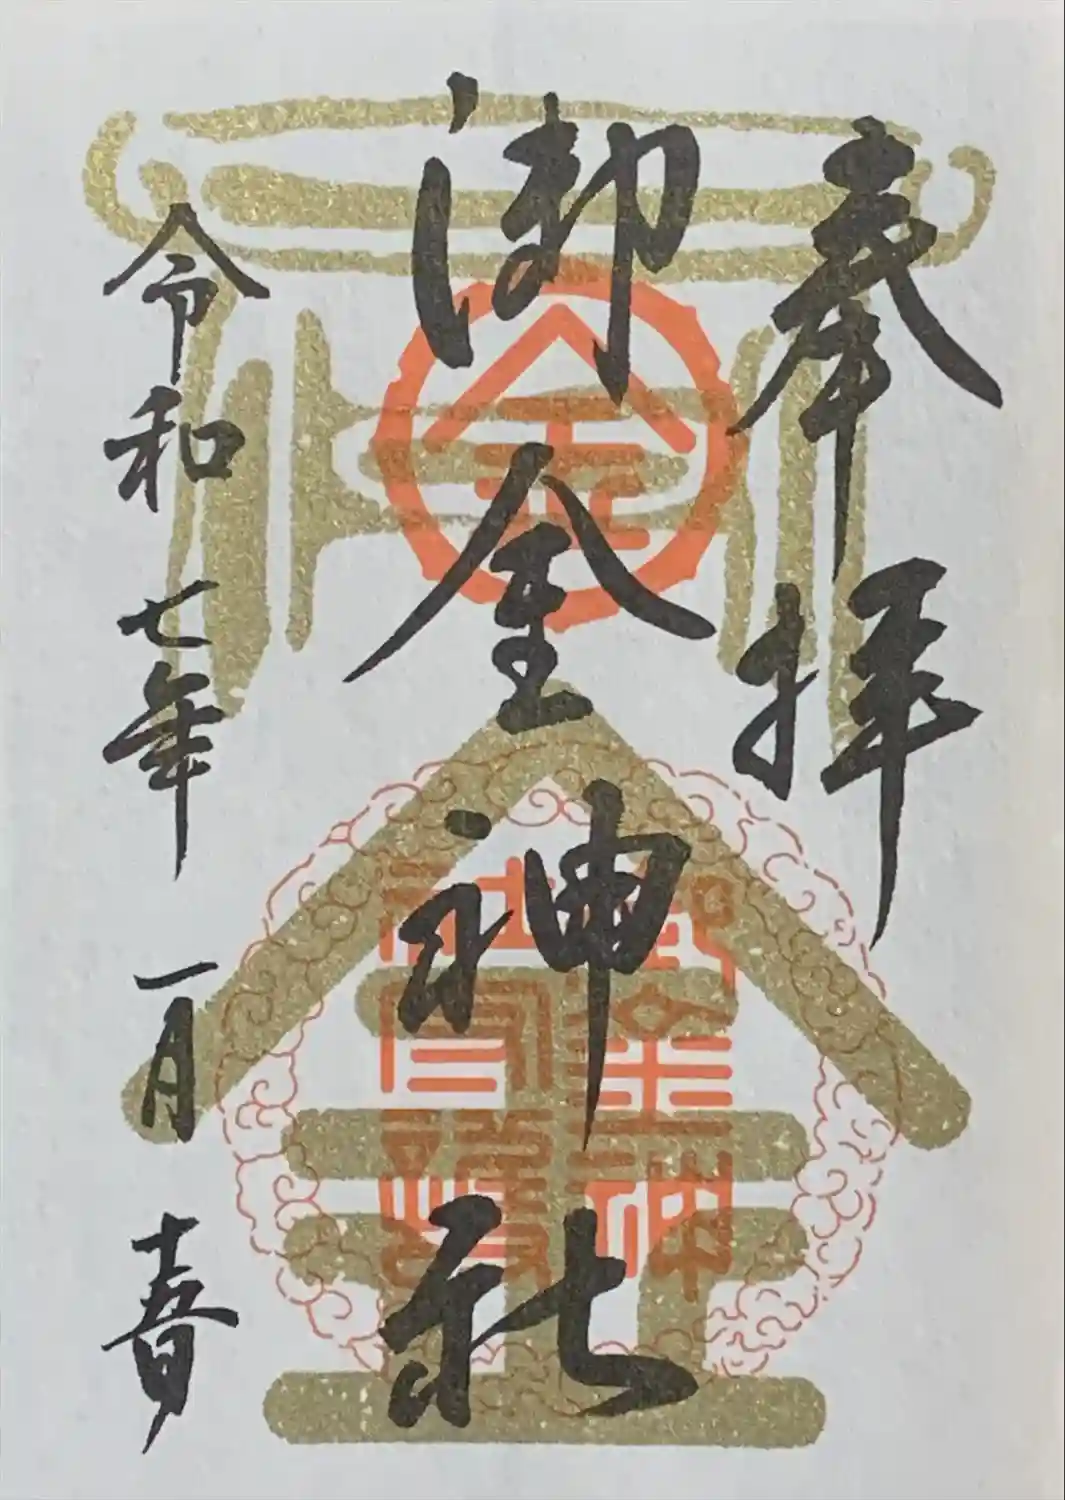 奉拝
御金神社
令和七年 一月
金
金